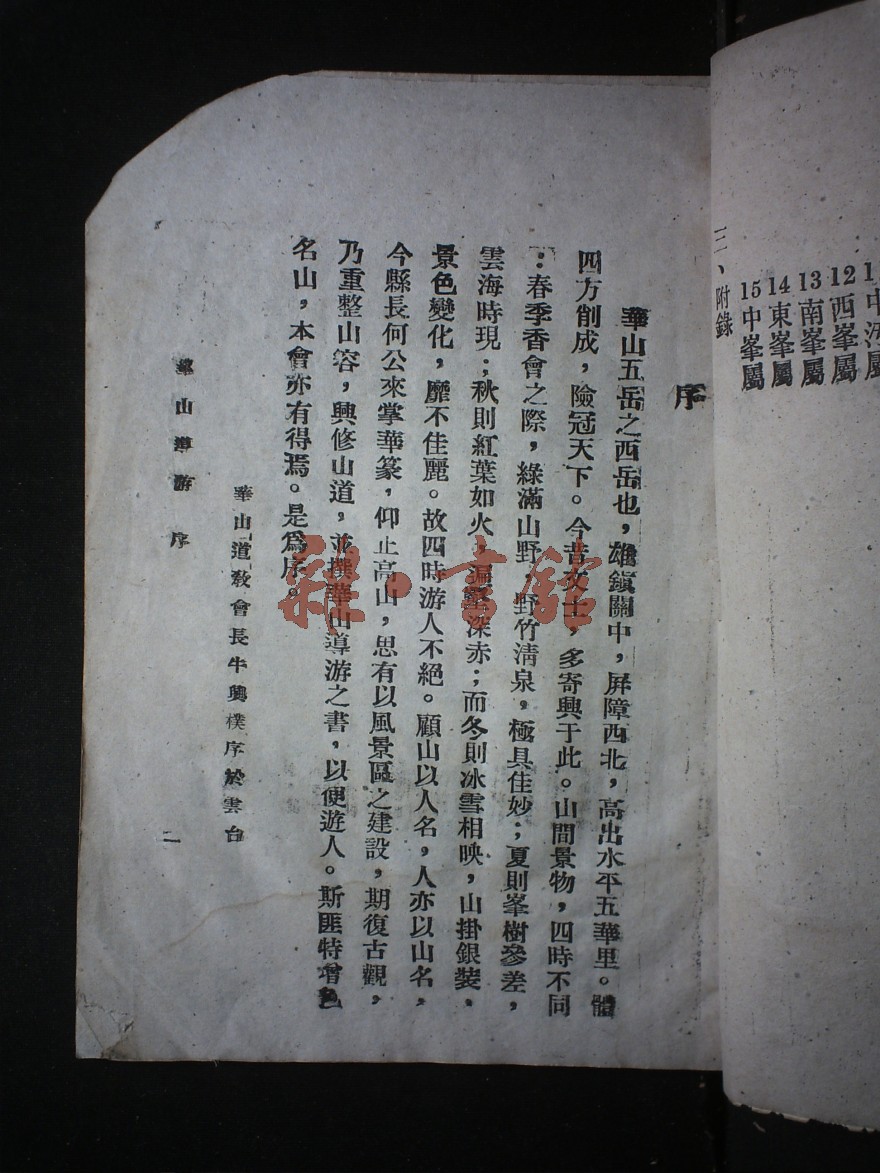 三、附錄
15中峯屬
14東峯屬
13南峯屬
12西峯屬
序
華山五岳之西岳也，雄鎮關中，屏障西北，高出水平五華里。體
四方削成，險冠天下。今昔文士，多寄興于此。山間景物，四時不同
：春季香會之際，綠滿山野，野竹清泉，極具佳妙；夏則峯樹參差，
雲海時現；秋則紅葉如火，遍壑深赤；而冬則冰雪相映，山掛銀裝，
景色變化，靡不佳麗。故四時游人不絕。顧山以人名，人亦以山名，
今縣長何公來掌華篆，仰止高山，思有以風景區之建設，期復古觀，
乃重整山容，興修山道，並撰華山導游之書，以便遊人。斯匪特增色
名山，本會亦有得焉。是為序。
華山道教會長牛興樸序於雲台
華山導游 序
二
雜·書館